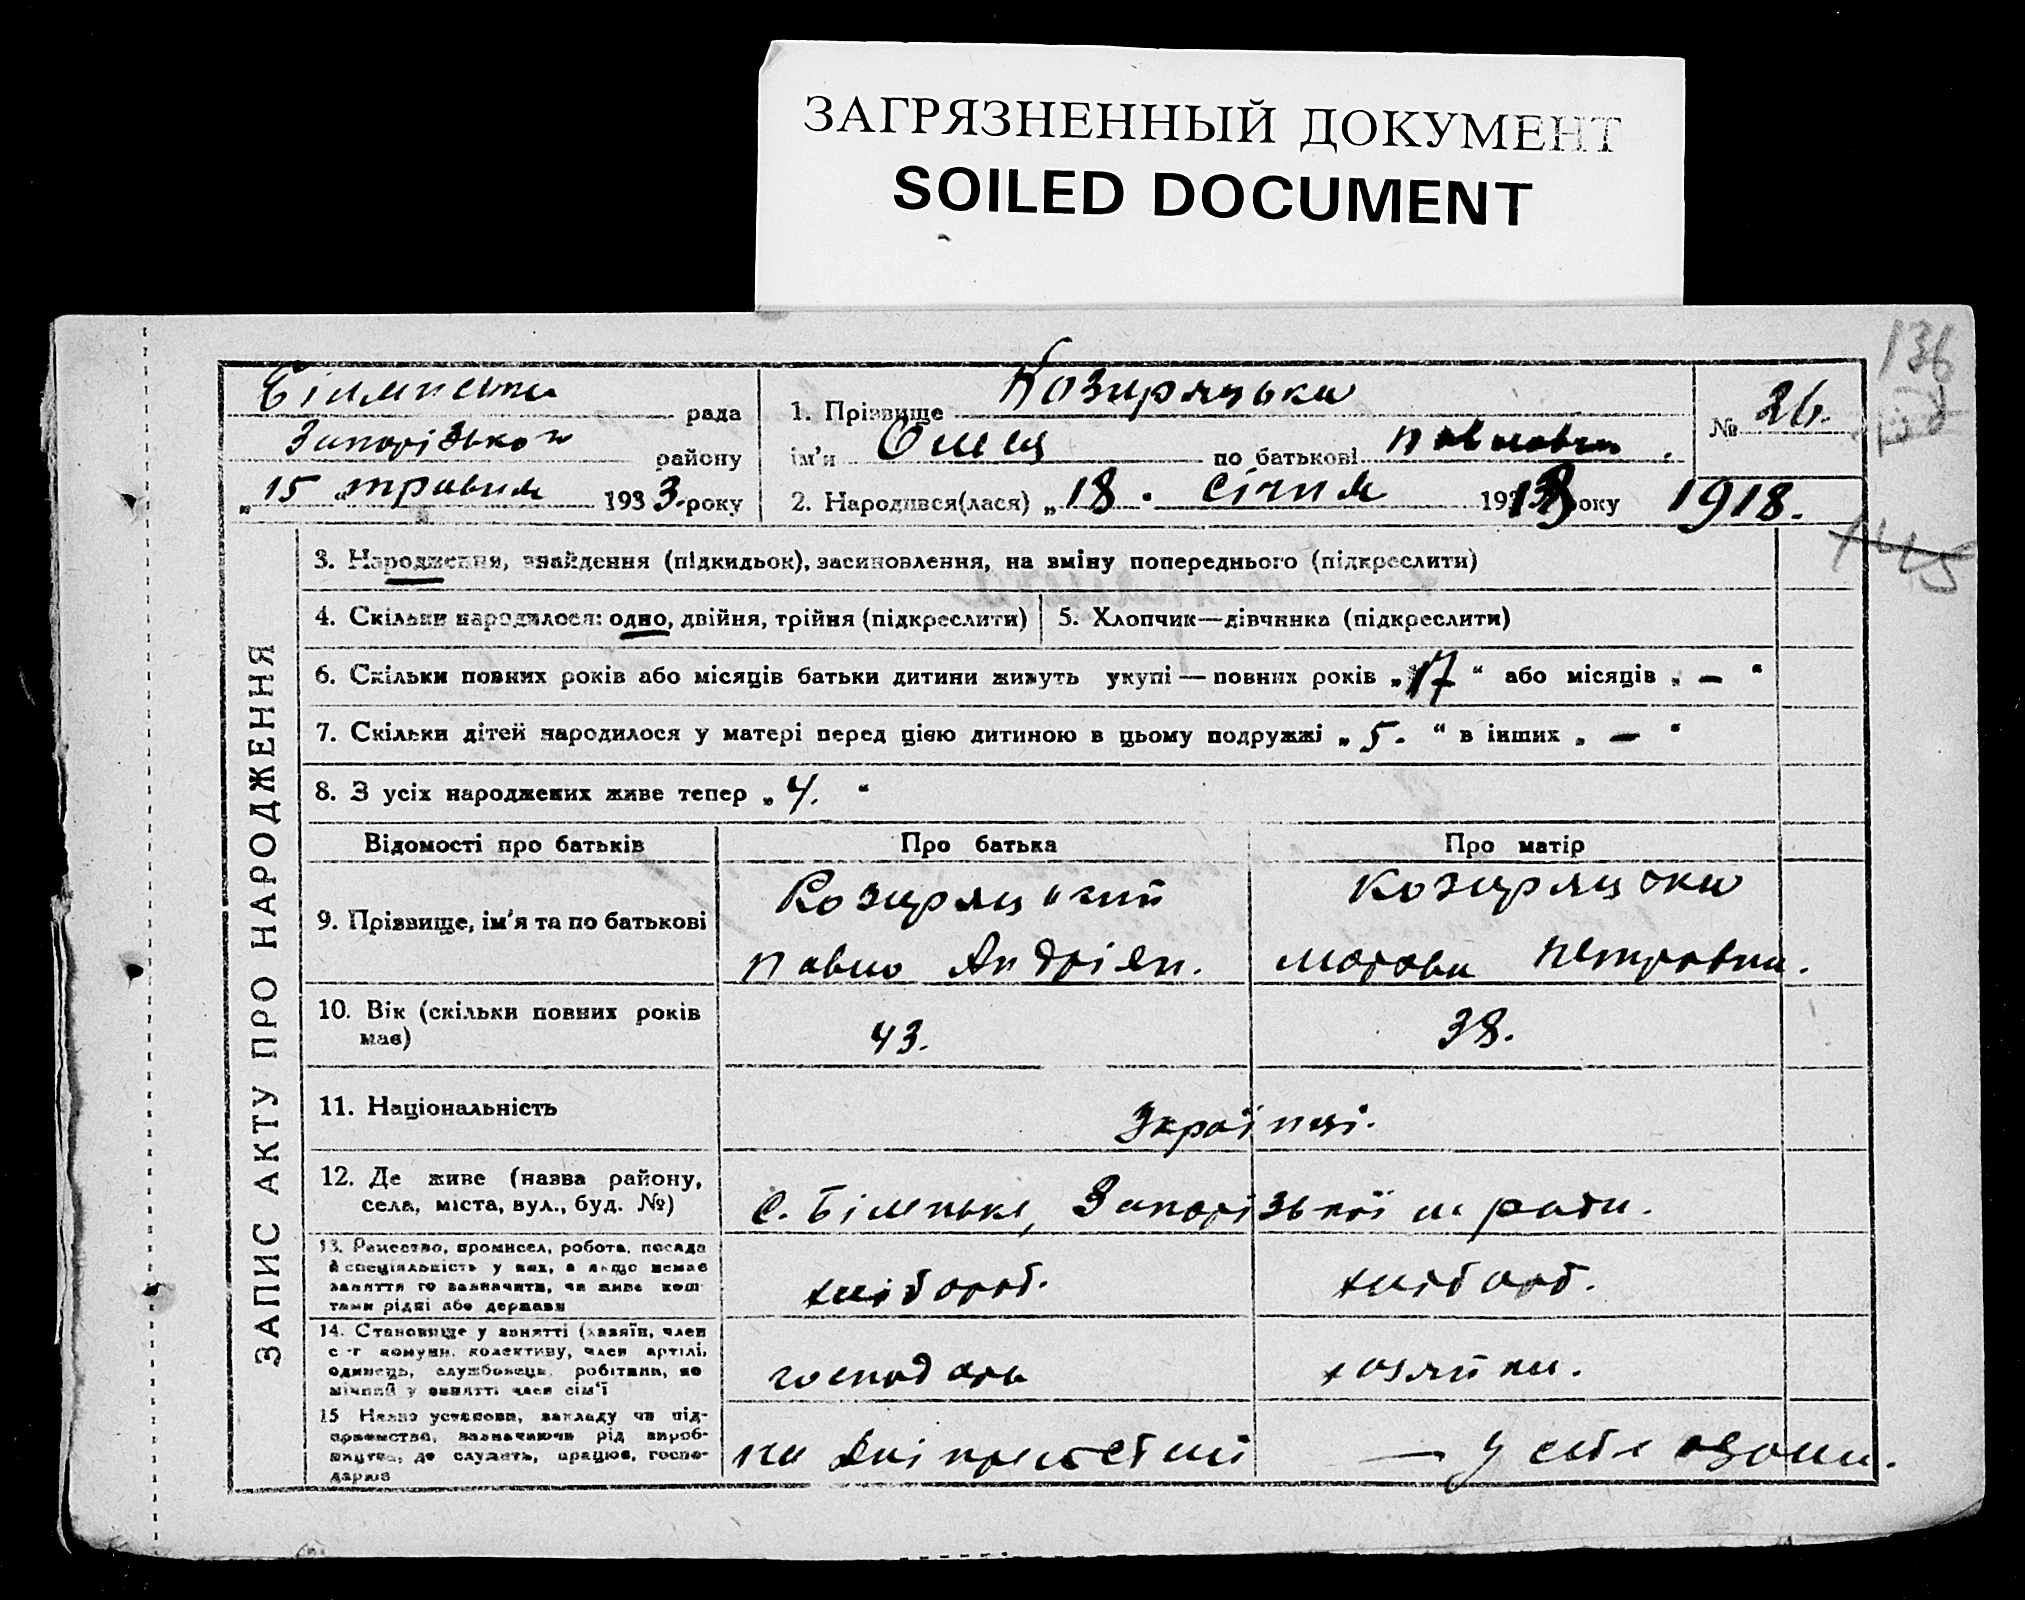 ЗАГРЯЗНЕННЫЙ ДОКУМЕНТ
SOILED DOCUMENT
136
рада
Запорізького району
„15 “ травня 1933 року
1. Прізвище Козиряцька
ім'я Олена по батькові Павловна.
2. Народився(лася) „18. січня року 1918.
№ 26.
145
ЗАПИС АКТУ ПРО НАРОДЖЕННЯ
3. Народження, знайдення (підкидьок), засиновлення, на зміну попереднього (підкреслити)
4. Скільки народилося: одно, двійня, трійня (підкреслити)
5. Хлопчик—дівчинка (підкреслити)
6. Скільки повних років або місяців батьки дитини живуть укупі — повних років „17“ або місяців „ — “
7. Скільки дітей народилося у матері перед цією дитиною в цьому подружжі „ 5. “ в інших „ — “
8. З усіх народжених живе тепер „ 4. “
Відомості про батьків
Про батька
Про матір
9. Прізвище, ім'я та по батькові
Козиряцький
Павло Андріян.
Козиряцька
Петровна.
10. Вік (скільки повних років має)
43.
38.
11. Національність
Українці.
12. Де живе (назва району, села, міста, вул., буд. №)
с. Біленьке, Запорізької м. ради.
13. Ремество, промисел, робота, посада й спеціяльність у них, а якщо немає заняття то зазначити, чи живе коштами рідні або держави
хлібороб.
хлібороб.
14. Становище у занятті (хазяїн, член с.-г комуни, колективу, член артілі, одинець, службовець, робітник, помічний у занятті член сім'ї
господарь
хозяйка.
15 Назва установи, закладу чи підприємства, зазначаючи рід виробництва, де служить, працює, господарює
на
— у себе вдома.